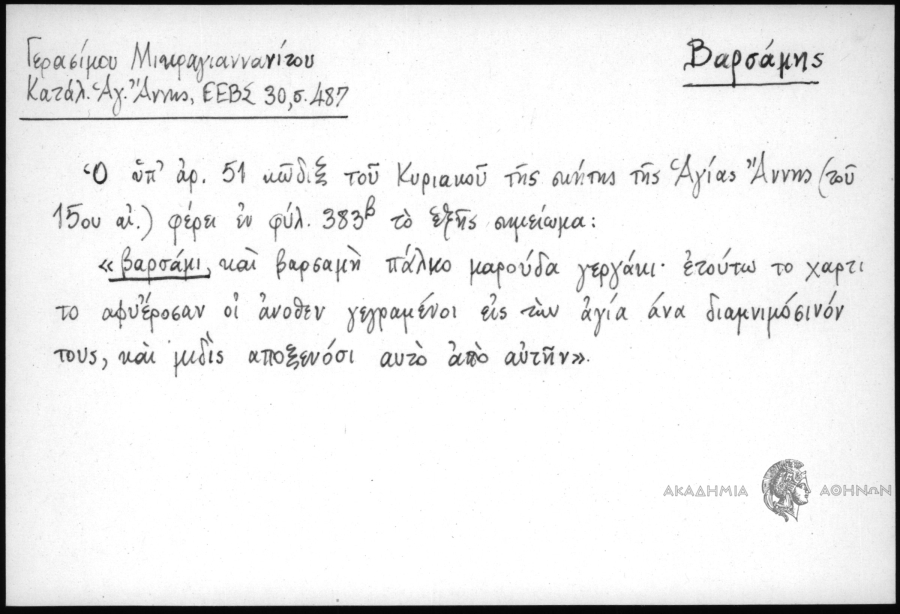 Γερασίμου Μικραγιαννανίτου
Βαρσάμης
Κατάλ. Ἁγ. Ἄννης, ΕΕΒΣ 30, σ. 487
Ὁ ὑπ' ἀρ. 51 κῶδιξ τοῦ Κυριακοῦ τῆς σκήτης τῆς Ἁγίας Ἄννης (τοῦ
15ου αἰ.) φέρει ἐν φύλ. 383β τὸ ἑξῆς σημείωμα:
«βαρσάμι, καὶ βαρσαμὴ πάλκο μαρούδα γεργάκι· ἐτούτω το χαρτι
το αφυἔροσαν οἱ ἄνοθεν γεγραμένοι εἰς τὼν ἁγία ἄνα διαμνιμόσινόν
τους, καὶ μιδὶς αποξενόσι αυτὸ ἀπὸ αὐτῆν».
ΑΚΑΔΗΜΙΑ ΑΘΗΝΩΝ